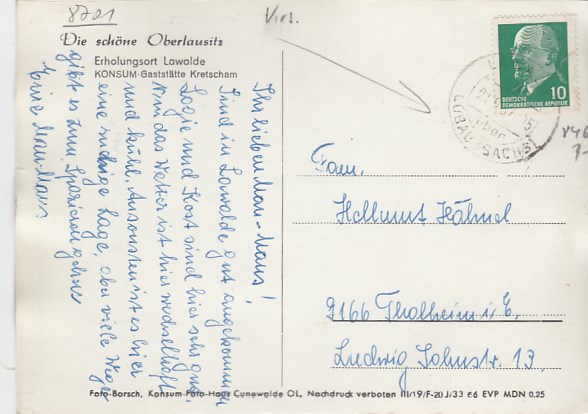 8701
Virs.
Die schöne Oberlausitz
Erholungsort Lawalde
KONSUM-Gaststätte Kretscham
Ihr lieben Mau-Maus!
Sind in Lawalde gut angekommen
Logie und Kost sind hier sehr gut.
das Wetter ist hier wechselhaft
und kühl. Ansonsten ist es hier
eine ruhige Lage, aber viele Wege
gibt es zum Spazieren gehen
Eure Mau-Maus
DEUTSCHE
DEMOKRATISCHE REPUBLIK
10
LÖBAU (SACHS)
Fam.
Hellmut Hähnel
9166 Thalheim i. E.
Ludwig Jahnstr. 13.
Foto-Borsch, Konsum-Foto-Haus Cunewalde OL, Nachdruck verboten III/19/F-20 J/33 66 EVP MDN 0,25